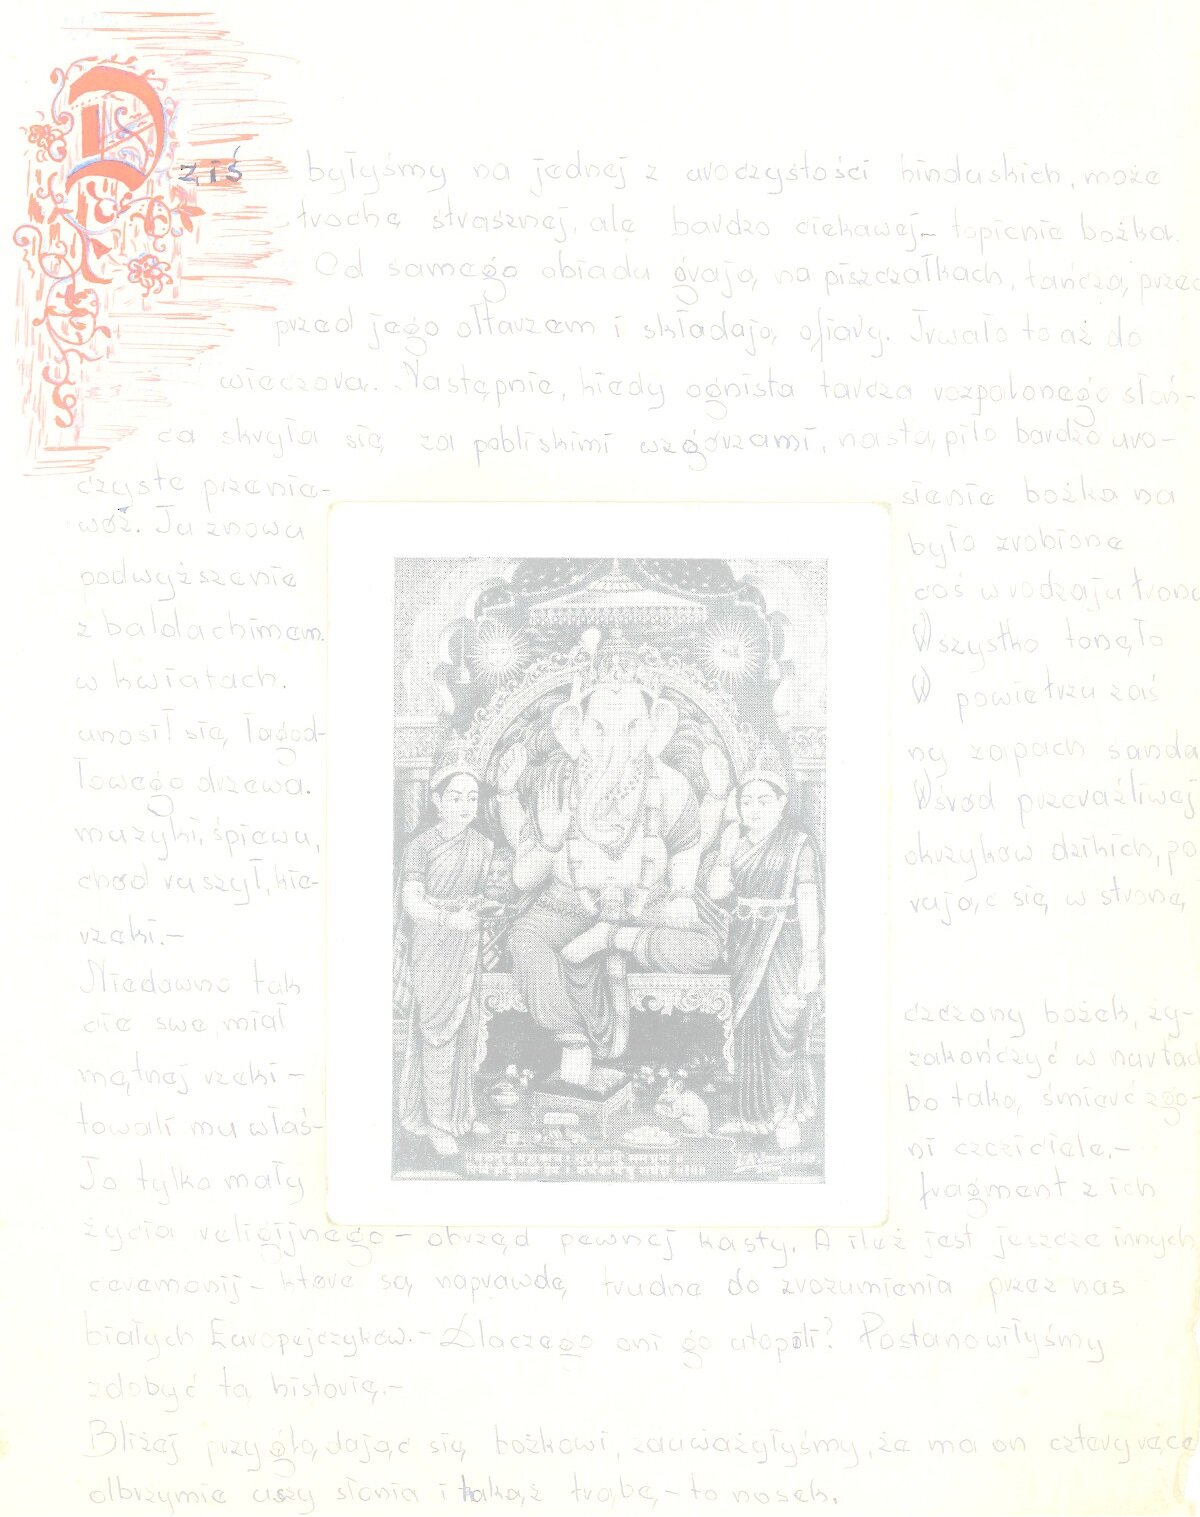 Dziś byłyśmy na jednej z uroczystości hinduskich, może
trochę strasznej, ale bardzo ciekawej – topienie bożka.
Od samego obiadu grają na piszczałkach, tańczą przed
przed jego ołtarzem i składają ofiary. Trwało to aż do
wieczora. Następnie, kiedy ognista tarcza rozpalonego słoń-
ca skryła się za pobliskimi wzgórzami, nastąpiło bardzo uro-
czyste przenie- sienie bożka na
wóz. Tu znowu było zrobione
podwyższenie coś w rodzaju tronu
z baldachimem. Wszystko tonęło
w kwiatach. W powietrzu zaś
unosił się łagod- ny zapach sanda
łowego drzewa. Wśród przeraźliwej
muzyki, śpiewu, okrzyków dzikich, po
chód ruszył, kie- rując się w stronę
rzeki.–
Niedawno tak czczony bożek, ży-
cie swe miał zakończyć w nurtach
mętnej rzeki – bo taką śmierć zgo-
towali mu właś- ni czciciele.–
To tylko mały fragment z ich
życia religijnego – obrzęd pewnej kasty. A ileż jest jeszcze innych
ceremonij – które są naprawdę trudne do zrozumienia przez nas
białych Europejczyków.– Dlaczego oni go utopili? Postanowiłyśmy
zdobyć tą historię.–
Bliżej przyglądając się bożkowi, zauważyłyśmy, że ma on cztery ręce
olbrzymie uszy słonia i takąż trąbę – to nosek.